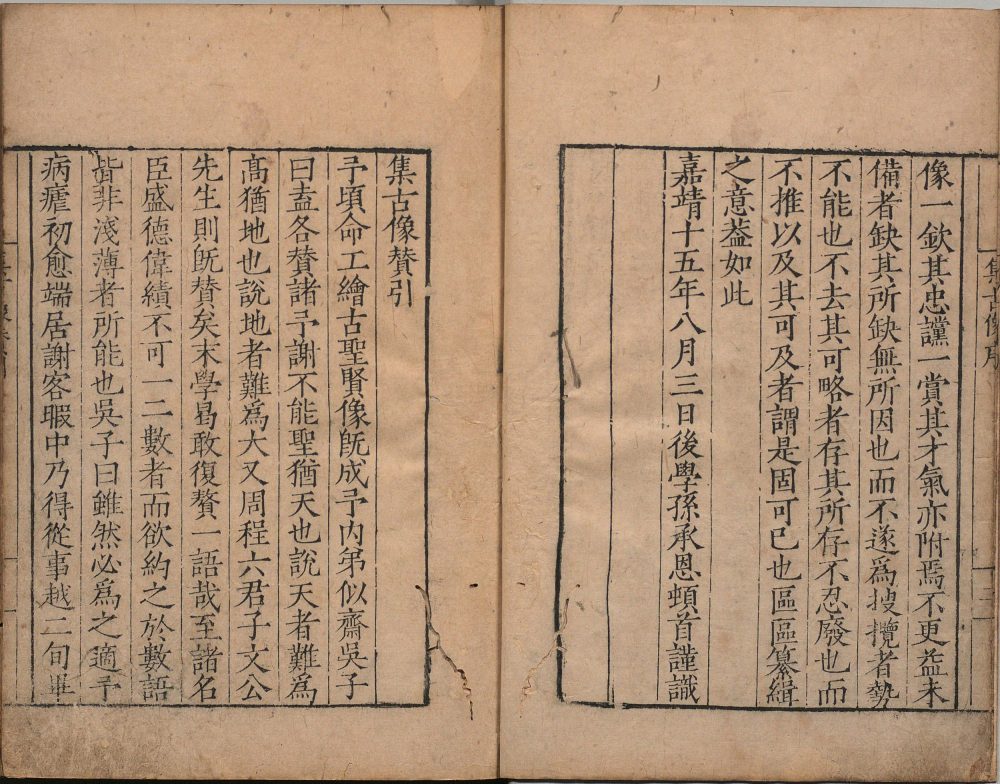 集古像序
三
像一欽其忠讜一賞其才氣亦附焉不更益未
備者缺其所缺無所因也而不遂爲搜攬者勢
不能也不去其可略者存其所存不忍廢也而
不推以及其可及者謂是固可已也區區纂緝
之意葢如此
嘉靖十五年八月三日後學孫承恩頓首謹識
集古像贊引
予頃命工繪古聖賢像既成予内弟似齋吳子
曰盍各贊諸予謝不能聖猶天也說天者難爲
高猶地也說地者難爲大又周程六君子文公
先生則旣贊矣末學曷敢復贅一語哉至諸名
臣盛德偉績不可一二數者而欲約之於數語
皆非淺薄者所能也吳子曰雖然必爲之適予
病瘧初愈端居謝客暇中乃得從事越二旬畢